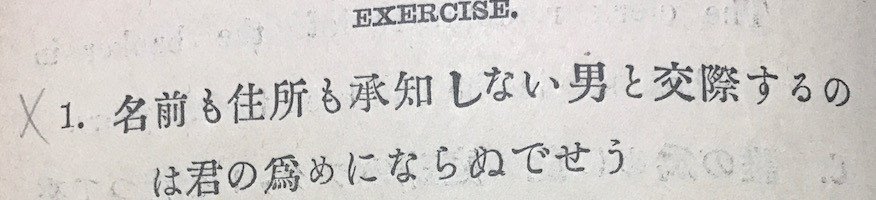 EXERCISE.
1. 名前も住所も承知しない男と交際するの
は君の爲めにならぬでせう